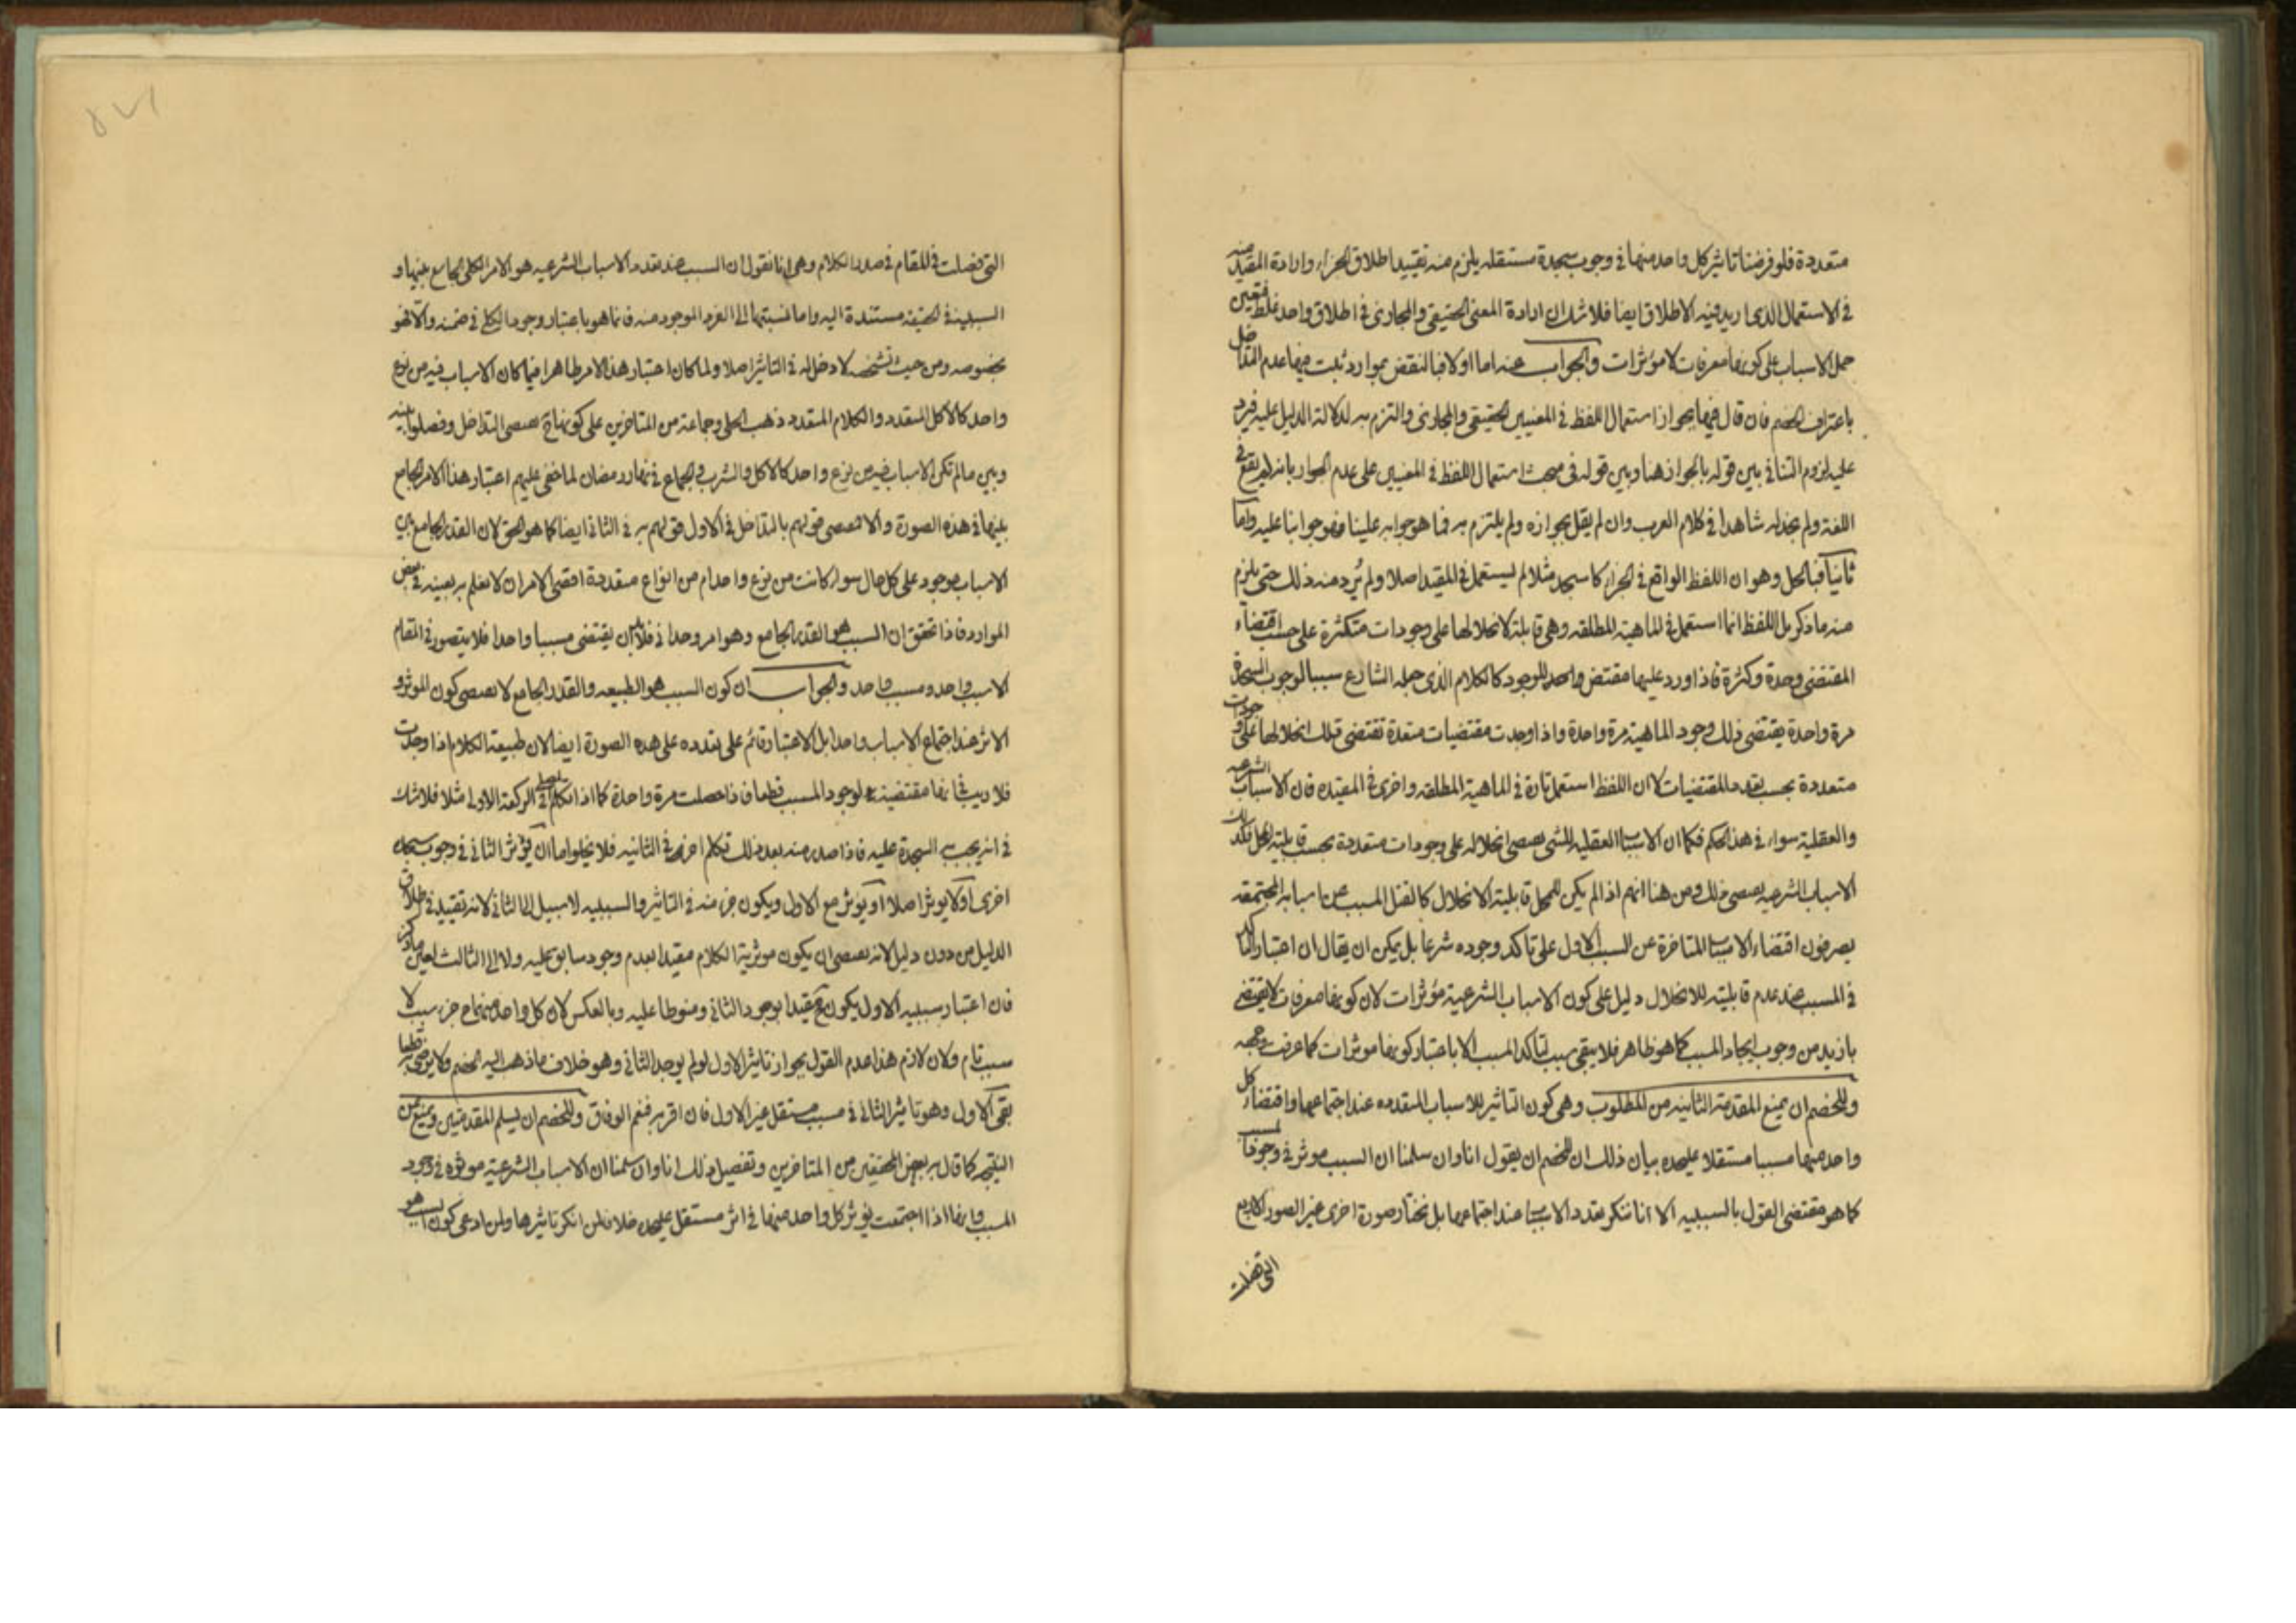 متعددة فلو فرضنا تاثير كل واحد منها في وجوب سجدة مستقله يلزم منه تقييد اطلاق الجزاء وارادة المقيد منه
في الاستعمال الذى اريد فيه الاطلاق ايضا فلا شك ان ارادة المعنى الحقيقي والمجازى في اطلاق واحد غلط فتعين
حمل الاسباب على كونها معرفات لا مؤثرات والجواب عنه اما اولا فبالنقض بموارد ثبت فيها عدم التداخل
باعتراف الخصم فان قال فيها بجواز استعمال اللفظ في المعنيين الحقيقي والمجازى والتزم به لدلالة الدليل عليه فيرد
عليه لزوم التنافي بين قوله بالجواز هنا وبين قوله في مبحث استعمال اللفظ في المعنيين على عدم الجواز بانه لم يقع في
اللغة ولم نجد له شاهدا في كلام العرب وان لم يقل بجوازه ولم يلتزم به فما هو جوابه علينا فهو جوابنا عليه واما
ثانيا فبالحل وهو ان اللفظ الواقع في الجزاء كاسجد مثلا لم يستعمل في المقيد اصلا ولم يُرد منه ذلك حتى يلزم
منه ما ذكر بل اللفظ انما استعمل في الماهية المطلقه وهي قابلة لانحلالها على وجودات متكثرة على حسب اقتضاء
المقتضى وحدة وكثرة فاذا ورد عليها مقتض واحد للوجود كالكلام الذى جعله الشارع سببا لوجوب السجدة
مرة واحدة يقتضى ذلك وجود الماهية مرة واحدة واذا وجدت مقتضيات متعددة تقتضى تلك انحلالها على وجودات
متعددة بحسب تعدد المقتضيات لا ان اللفظ استعمل تارة في الماهية المطلقه واخرى في المقيده فان الاسباب الشرعيه
والعقلية سواء في هذا الحكم فكما ان الاسباب العقليه للشى يقتضى انحلاله على وجودات متعددة بحسب قابلية المحل فكذلك
الاسباب الشرعيه يقتضى ذلك ومن هنا انهم اذا لم يكن للمحل قابلية الانحلال كالقتل المسبب عن اسبابه المجتمعه
يصرفون اقتضاء الاسباب المتاخرة عن السبب الاول على تاكد وجوده شرعا بل يمكن ان يقال ان اعتبار التاكد
في المسبب عند عدم قابليته للانحلال دليل على كون الاسباب الشرعية مؤثرات لان كونها معرفات لا يقتضى
بازيد من وجوب ايجاد المسبب كما هو ظاهر فلا يبقى سبب لتاكد المسبب الا باعتبار كونها موثرات كما عرفت وجهه
وللخصم ان يمنع المقدمة الثانيه من المطلوب وهى كون التاثير للاسباب المتعدده عند اجتماعها واقتضاء كل
واحد منها مسببا مستقلا عليحده بيان ذلك ان للخصم ان يقول انا وان سلمنا ان السبب موثر في وجود المسبب
كما هو مقتضى القول بالسببيه الا انا ننكر تعدد الاسباب عند اجتماعها بل نختار صورة اخرى غير الصور الاربع
التى فصلت
التى فصلت في المقام في صدر الكلام وهى انا نقول ان السبب عند تعدد الاسباب الشرعيه هو الامر الكلى الجامع بينها و
السببية في الحقيقه مستندة اليه واما نسبتها الى الفرد الموجود منه فانما هو باعتبار وجود الكلى في ضمنه والا فهو
بخصوصه ومن حيث تشخصه لا دخل له في التاثير اصلا ولما كان اعتبار هذا الامر ظاهرا فيما كان الاسباب فيه من نوع
واحد كالاكل المتعدد والكلام المتعدد ذهب الحلى وجماعة من المتاخرين على كونها ح يقتضى التداخل وفصلوا بينه
وبين ما لم تكن الاسباب فيه من نوع واحد كالاكل والشرب والجماع في نهار رمضان لما خفى عليهم اعتبار هذا الامر الجامع
بينها في هذه الصورة والا لاقتضى قولهم بالتداخل في الاول قولهم به في الثاني ايضا كما هو الحق لان القدر الجامع بين
الاسباب موجود على كل حال سواء كانت من نوع واحد ام من انواع متعددة اقتضى الامر ان لا نعلم به بعينه في بعض
الموارد فاذا تحقق ان السبب هو القدر الجامع وهو امر وحدانى فلا بد ان يقتضى مسببا واحدا فلا يتصور في المقام
الا سبب واحد ومسبب واحد والجواب ان كون السبب هو الطبيعه والقدر الجامع لا يقتضى كون الموثر و
الاثر عند اجتماع الاسباب واحدا بل الاعتبار قائم على تعدده على هذه الصورة ايضا لان طبيعة الكلام اذا وجدت
فلا ريب في انها مقتضية لوجود المسبب قطعا فاذا حصلت مرة واحدة كما اذا تكلم المصلى في الركعة الاولى مثلا فلا شك
في انه يجب السجدة عليه فاذا صدر منه بعد ذلك تكلم اخر في الثانيه فلا يخلوا اما ان يؤثر الثاني في وجوب سجدة
اخرى او لا يوثر اصلا او يوثر مع الاول ويكون جزء منه في التاثير والسببيه لا سبيل الى الثاني لانه تقييد في اطلاق
الدليل من دون دليل لانه يقتضى ان يكون موثرية الكلام مقيدا بعدم وجود سابق عليه ولا الى الثالث لعين ما ذكر
فان اعتبار سببيه الاول يكون ح مقيدا بوجود الثاني ومنوطا عليه وبالعكس لان كل واحد منهما ح جزء سبب لا
سبب تام ولان لازم هذا عدم القول بجواز تاثير الاول لو لم يوجد الثاني وهو خلاف ما ذهب اليه الخصم ولا يرضى به قطعا
بقى الاول وهو تاثير الثاني في مسبب مستقل غير الاول فان اقر به فنعم الوفاق وللخصم ان يسلم المقدمتين ويمنع عن
النتيجه كما قال به بعض المحققين من المتاخرين وتفصيل ذلك انا وان سلمنا ان الاسباب الشرعية موثره في وجود
المسبب وانها اذا اجتمعت يوثر كل واحد منها في اثر مستقل عليحده خلافا لمن انكر تاثيرها ولمن ادعى كون السبب هو